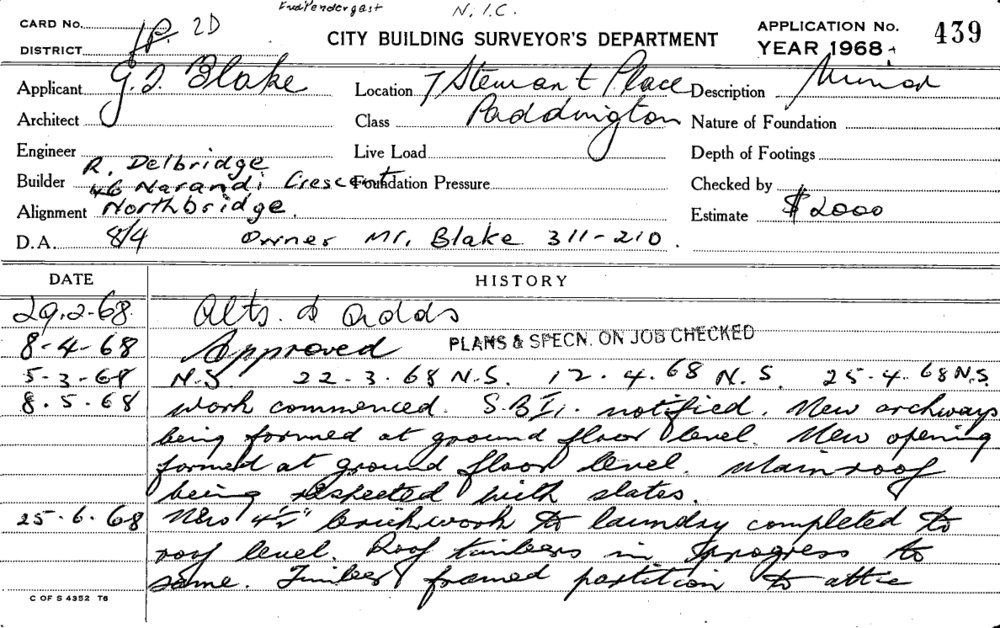 N.I.C.
CARD No. 2D
DISTRICT
CITY BUILDING SURVEYOR'S DEPARTMENT
APPLICATION No. 439
YEAR 1968
Applicant G. J. Blake Location 7 Stewart Place Description Minor
Architect Class Paddington Nature of Foundation
Engineer Live Load Depth of Footings
Builder R. Delbridge Foundation Pressure Checked by
46 Narandi Crescent
Alignment Northbridge. Estimate $2000
D.A. 8/4 Owner Mr. Blake 311-210.
DATE HISTORY
29.2.68 Alts. & adds
8-4-68 Approved PLANS & SPECN. ON JOB CHECKED
5-3-68 N.S 22-3.68 N.S. 12.4.68 N.S. 25-4.68 N.S.
8.5.68 Work commenced. notified. New archways
being formed at ground floor level. New opening
formed at ground floor level. Main roof
being with slates.
25.6.68 New 4½" brickwork to laundry completed to
roof level. Roof timbers in progress to
same. Timber framed partition to attic
C OF S 4352 T6